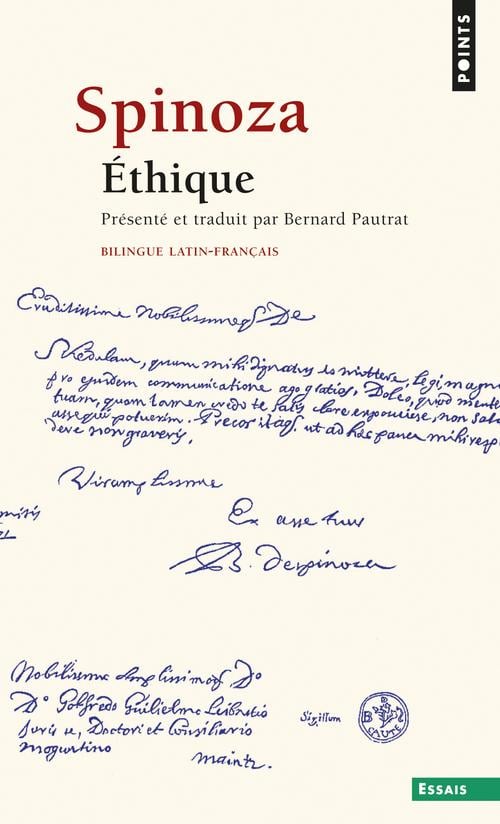 POINTS
Spinoza
Éthique
Présenté et traduit par Bernard Pautrat
BILINGUE LATIN-FRANÇAIS
Eruditissime Nobilissimeqꝫ De
Schedulam, quam mihi dignatus es mittere, legi, magna
pro ejusdem communicatione ago gratias. Doleo, quod mente
tuam, quam tamen credo te satis clare exposuisse, non sat
assequi potuerim. Precor itaqꝫ ut ad haec pauca mihi resp
dere non graveris,
Vir amplissime
Ex asse tuus
B. despinoza
Nobilissimo Amplissimoqꝫ Do
Do Gotfredo Guilielmo Leibnitio
Juris u, Doctori et Consiliario
Moguntino
Maintz.
Sigillum
B D S
CAUTE
ESSAIS